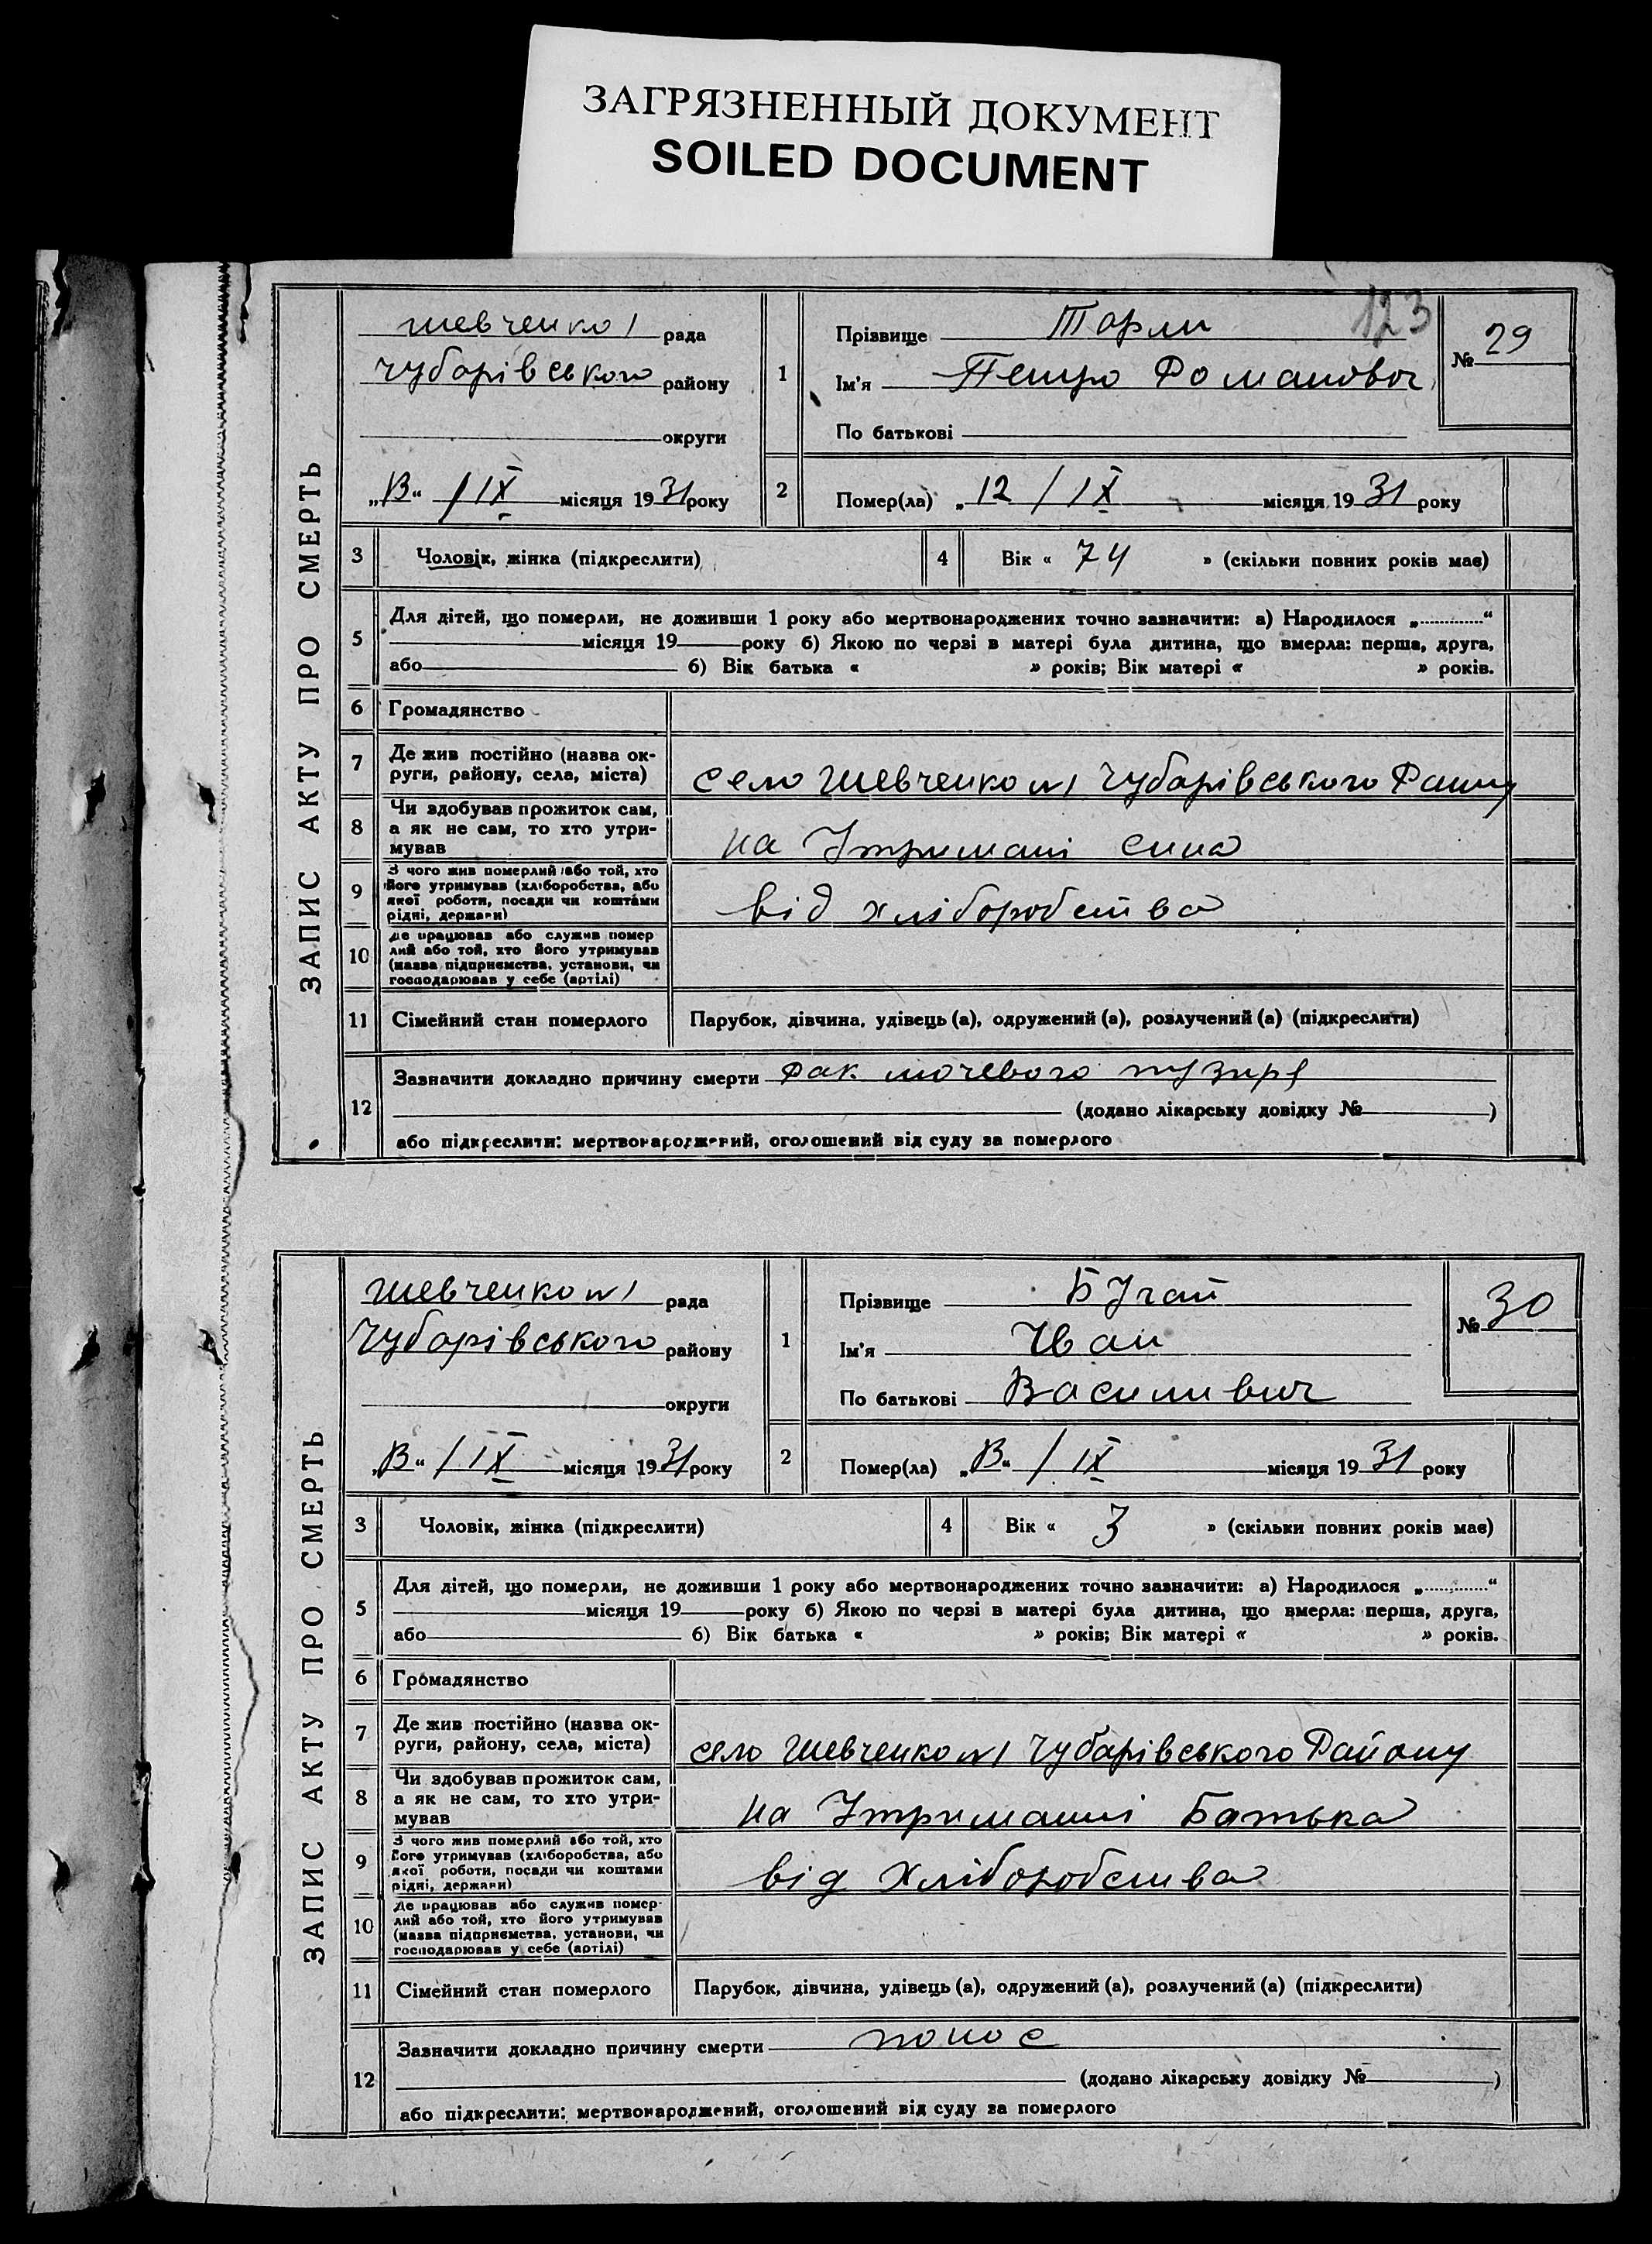 ЗАГРЯЗНЕННЫЙ ДОКУМЕНТ
SOILED DOCUMENT
123
ЗАПИС АКТУ ПРО СМЕРТЬ
шевченко 1 рада
чубарівського району
округи
„13“ / IX місяця 1931 року
1
Прізвище
Ім'я Петро Романович
По батькові
№ 29
2
Помер(ла) „12 / IX місяця 1931 року
3 Чоловік, жінка (підкреслити)
4 Вік « 74 » (скільки повних років має)
5 Для дітей, що померли, не доживши 1 року або мертвонароджених точно зазначити: а) Народилося „............“
місяця 19 року б) Якою по черзі в матері була дитина, що вмерла: перша, друга,
або б) Вік батька « » років; Вік матері « » років.
6 Громадянство
7 Де жив постійно (назва ок-
руги, району, села, міста) село Шевченко №1 Чубарівського
8 Чи здобував прожиток сам,
а як не сам, то хто утри-
мував на Утримані сина
9 З чого жив померлий або той, хто
його утримував (хліборобства, або
якої роботи, посади чи коштами
рідні, держави) від хліборобства
10 Де працював або служив помер
лий або той, хто його утримував
(назва підприємства, установи, чи
господарював у себе (артілі)
11 Сімейний стан померлого Парубок, дівчина, удівець (а), одружений (а), розлучений (а) (підкреслити)
12 Зазначити докладно причину смерти рак мочевого пузиря
(додано лікарську довідку № )
або підкреслити: мертвонароджений, оголошений від суду за померлого
ЗАПИС АКТУ ПРО СМЕРТЬ
шевченко №1 рада
Чубарівського району
округи
„13“ / IX місяця 1931 року
1
Прізвище Бугай
Ім'я Иван
По батькові Василивич
№ 30
2
Помер(ла) „13“ / IX місяця 1931 року
3 Чоловік, жінка (підкреслити)
4 Вік « 3 » (скільки повних років має)
5 Для дітей, що померли, не доживши 1 року або мертвонароджених точно зазначити: а) Народилося „............“
місяця 19 року б) Якою по черзі в матері була дитина, що вмерла: перша, друга,
або б) Вік батька « » років; Вік матері « » років.
6 Громадянство
7 Де жив постійно (назва ок-
руги, району, села, міста) село Шевченко №1 Чубарівського Району
8 Чи здобував прожиток сам,
а як не сам, то хто утри-
мував на Утриманні Батька
9 З чого жив померлий або той, хто
його утримував (хліборобства, або
якої роботи, посади чи коштами
рідні, держави) від Хліборобства
10 Де працював або служив помер-
лий або той, хто його утримував
(назва підприємства, установи, чи
господарював у себе (артілі)
11 Сімейний стан померлого Парубок, дівчина, удівець (а), одружений (а), розлучений (а) (підкреслити)
12 Зазначити докладно причину смерти понос
(додано лікарську довідку № )
або підкреслити: мертвонароджений, оголошений від суду за померлого